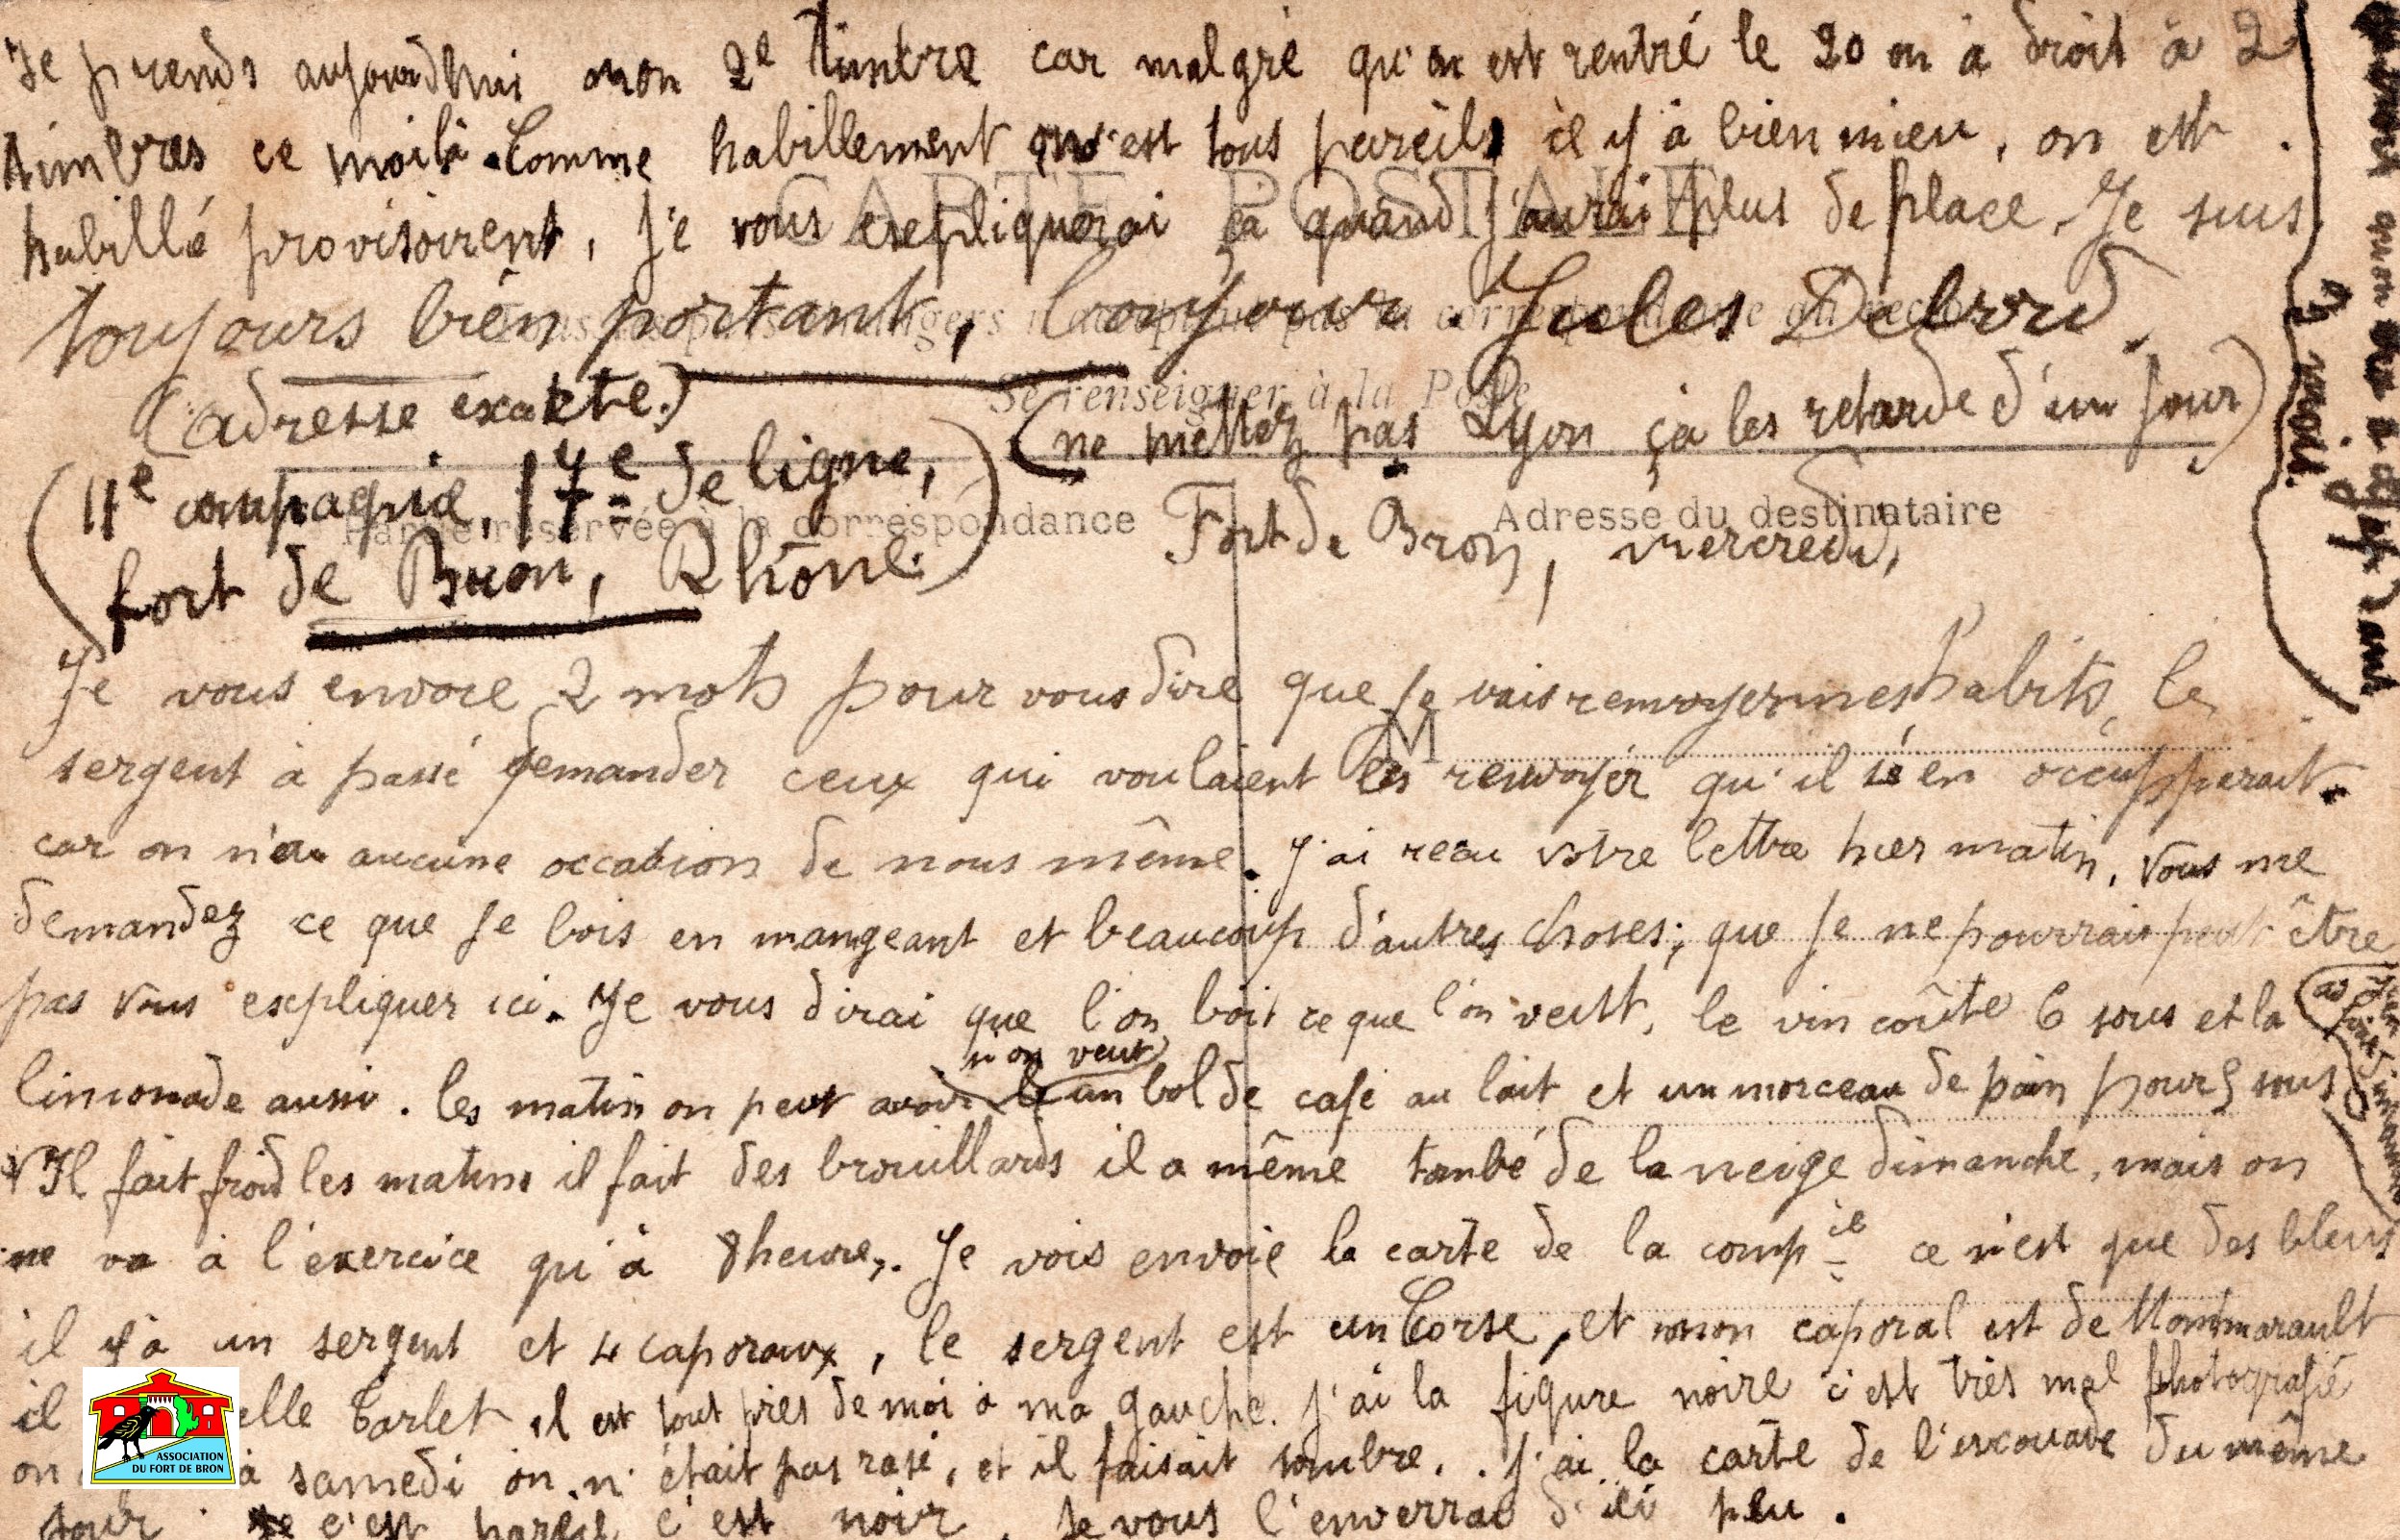 Je prends aujourdhui mon 2e timbre car malgré qu'on est rentré le 20 on à droit à 2
timbres ce moilà. Comme habillement on est tous pareils il y à bien mieu, on est
habillé provisoirent, je vous expliquerai ça quand j'aurai plus de place. Je suis
toujours bien portant, bonjour. Jules Debrud.
CARTE POSTALE
Se renseigner à la Poste
(adresse exacte.)
(ne mettez pas Lyon ça les retarde d'un jour)
(11e compagnie, 17e de ligne,
fort de Bron, Rhône.)
Partie réservée à la correspondance
Adresse du destinataire
Fort de Bron, mercredi,
Je vous envoie 2 mots pour vous dire que je vais renvoyer mes habits, le
M
sergent à passé demander ceux qui voulaient les renvoyer qu'il s'en occupperait.
car on n'a aucune occasion de nous même. J'ai reçu votre lettre hier matin, vous me
demandez ce que je bois en mangeant et beaucoup d'autres choses; que je ne pourrais peut être
pas vous expliquer ici. Je vous dirai que l'on boit ce que l'on veut, le vin coûte 6 sous et la
si on veut
limonade aussi. les matin on peut avoir un bol de café au lait et un morceau de pain pour 3 sous
Il fait froid les matins il fait des brouillards il a même tombé de la neige dimanche, mais on
ne va à l'exercice qu'à 8 heures. Je vois envoie la carte de la compie ce n'est que des bleus
il y à un sergent et 4 caporaux, le sergent est un Corse, et mon caporal est de Montmarault
il elle Barlet il est tout près de moi à ma gauche. J'ai la figure noire c'est très mal photografié
on à samedi on n'était pas rasé, et il faisait sombre. J'ai la carte de l'escouade du même
jour c'est pareil c'est noir. Je vous l'enverrai d'ici peu.
ASSOCIATION
DU FORT DE BRON